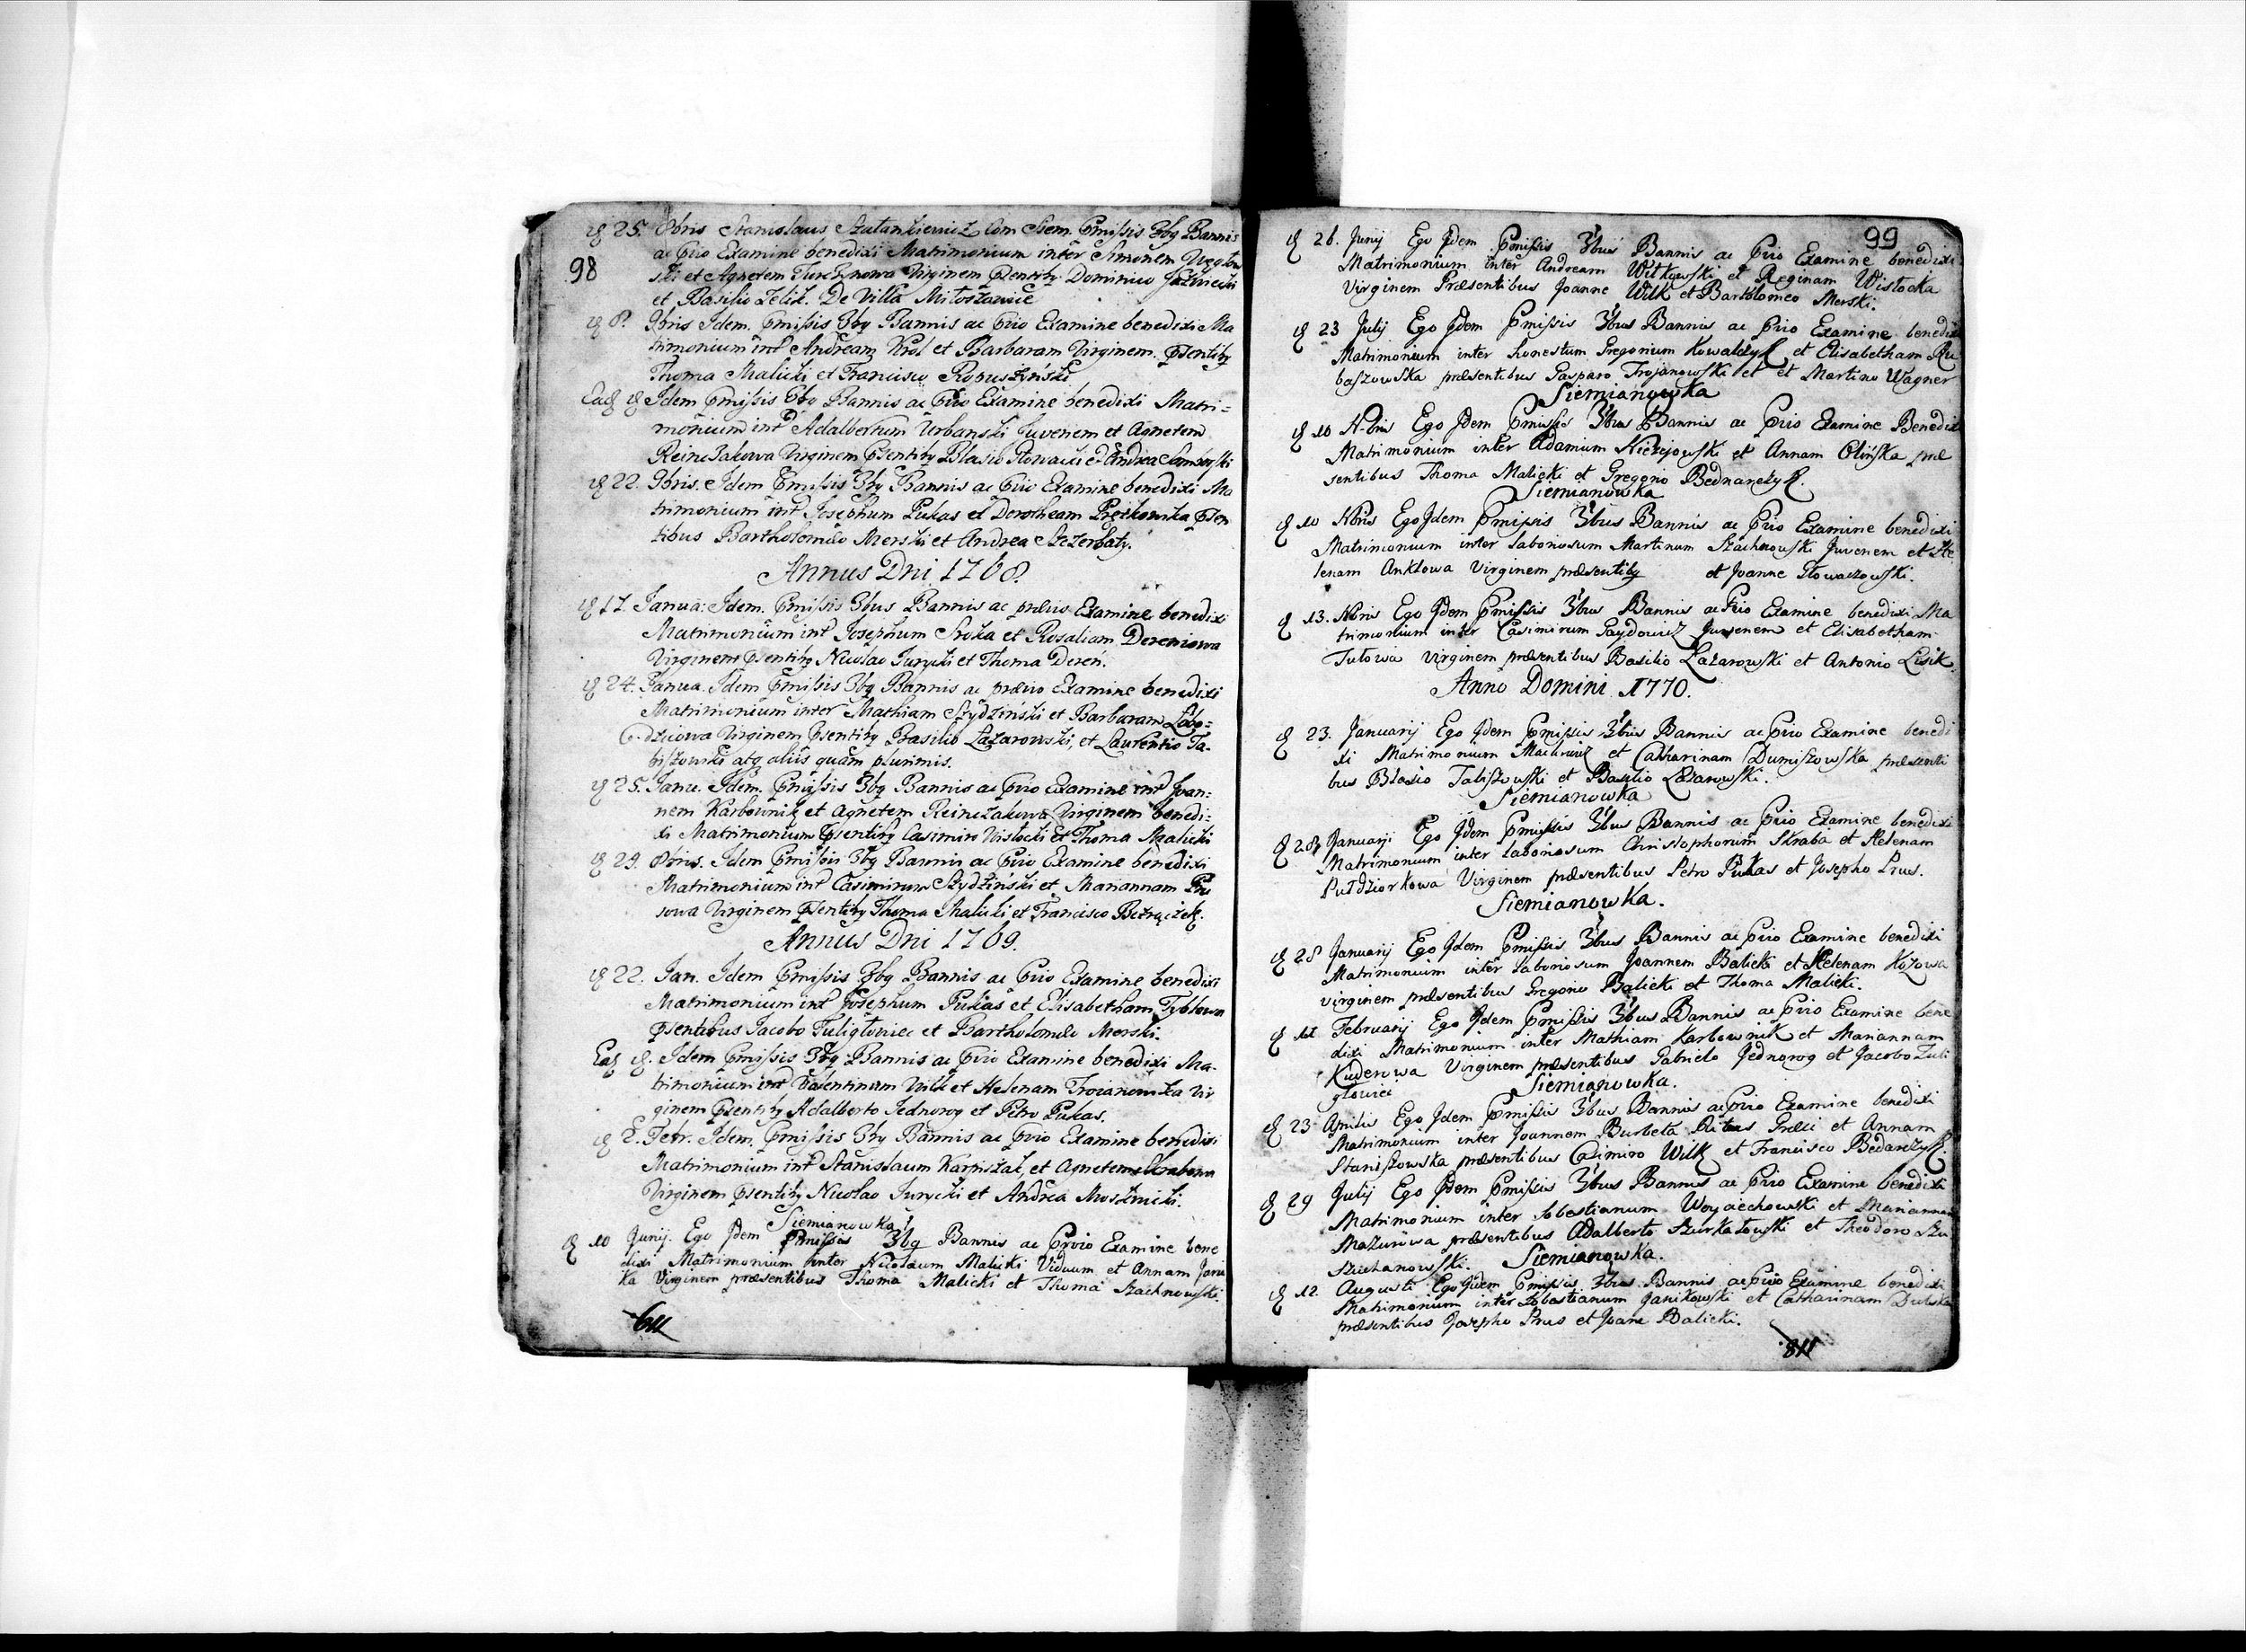 98
25. 8bris Stanislaus Szatankiewicz Com Siem. Pmissis 3bq Bannis
ac Pvio Examine benedixi Matrimonium inter Simonem
ski et Agnetem Virginem Psentibq Dominico
et Basilio Zelik. De Villa Miłoszowice
8. 9bris Idem. Pmissis 3bq Bannis ac Pvio Examine benedixi Ma
trimonium int Andream Krol et Barbaram Virginem. Psentibq
Thoma Malicki et Francisco Ropuszyński
Eadq Idem Pmissis 3bq Bannis ac Pvio Examine benedixi Matri=
monium int Adalbertum Urbanski Juvenem et Agnetem
Reinczakowa Virginem Psentibq Blasio Głowacki et Andrea
22. 9bris. Idem Pmissis 3bq Bannis ac Pvio Examine benedixi Ma
trimonium int Josephum Pukas et Dorotheam Psen
tibus Bartholomæo Merski et Andrea Szczerbaty.
Annus Dni 1768.
17 Janua: Idem. Pmissis 3bus Bannis ac prævio Examine benedixi
Matrimonium int Josephum Sroka et Rosaliam Dereniowa
Virginem Psentibq Nicolao Jurycki et Thoma Dereń.
24. Janua. Idem Pmissis 3bq Bannis ac prævio Examine benedixi
Matrimonium inter Mathiam Szydziński et Barbaram
dziowa Virginem Psentibq Basilio Łazarowski, et Laurentio Ta-
biszowski atq aliis quam plurimis.
25. Janu. Idem. Pmissis 3bq Bannis ac Pvio Examine int Joan=
nem Karbownik et Agnetem Reinczakowa Virginem benedi=
xi Matrimonium Psentibq Casimiro Wisłocki et Thoma Malicki
29. 8bris. Idem Pmissis 3bq Bannis ac Pvio Examine benedixi
Matrimonium int Casimirum Szydziński et Mariannam Pru
sowa Virginem Psentibq Thoma Malicki et Francisco
Annus Dni 1769.
22. Jan. Idem Pmissis 3bq Bannis ac Pvio Examine benedixi
Matrimonium int Josephum Pukas et Elisabetham
Psentibus Jacobo Tuligłowiec et Bartholomæo Merski.
Eaq Idem Pmissis 3bq Bannis ac Pvio Examine benedixi Ma-
trimonium int Valentinum Wilk et Helenam Troianowska Vir
ginem Psentibq Adalberto Jednorog et Petro Pukas.
2. Febr. Idem. Pmissis 3bq Bannis ac Pvio Examine benedixi
Matrimonium int Stanislaum et Agnetem
Virginem Psentibq Nicolao Jurycki et Andrea
Siemianowka
10 Junij. Ego Idem Pmissis 3bq Bannis ac Prvio Examine bene
dixi Matrimonium inter Nicolaum Malicki Viduum et Annam
ka Virginem præsentibus Thoma Malicki et Thoma Szachnowski.
99
26. Junij Ego Idem Pmissis 3bus Bannis ac Pvio Examine benedixi
Matrimonium inter Andream Witkowski et Reginam Wisłocka
Virginem Præsentibus Joanne Wilk et Bartholomeo Merski.
23 Julij Ego Idem Pmissis 3bus Bannis ac Pvio Examine benedixi
Matrimonium inter honestum Gregorium Kowalczyk et Elisabetham
baszowska præsentibus Gasparo Trojanowski et et Martino Wagner
Siemianowka
10 N-bris Ego Idem Pmissis 3bus Bannis ac Pvio Examine Benedixi
Matrimonium inter Adamum et Annam Olinska præ
sentibus Thoma Malicki et Gregorio Bednarczyk.
Siemianowka
10 Nbris Ego Idem Pmissis 3bus Bannis ac Pvio Examine benedixi
Matrimonium inter laboriosum Martinum Szachnowski Juvenem et He
lenam Anklowa Virginem præsentibq et Joanne Głowaczowski.
13. Nbris Ego Idem Pmissis 3bus Bannis ac Pvio Examine benedixi Ma
trimonium inter Casimirum Gaydowicz Juvenem et Elisabetham
Tutowa virginem præsentibus Basilio Łazarowski et Antonio Lisik
Anno Domini 1770.
23. Januarij Ego Idem Pmissis 3bus Bannis ac Pvio Examine benedi
xi Matrimonium et Catharinam Dumiszowska præsenti
bus Blasio Tabiszowski et Basilio Łazarowski.
Siemianowka
28 Januarij Ego Idem Pmissis 3bus Bannis ac Pvio Examine benedixi
Matrimonium inter laboriosum Christophorum Skraba et Helenam
Puldziorkowa Virginem præsentibus Petro Pukas et Josepho Prus.
Siemianowka.
28 Januarij Ego Idem Pmissis 3bus Bannis ac Pvio Examine benedixi
Matrimonium inter laboriosum Joannem Balicki et Helenam Kozowa
virginem præsentibus Gregorio Balicki et Thoma Malicki.
Februarij Ego Idem Pmissis 3bus Bannis ac Pvio Examine bene
dixi Matrimonium inter Mathiam Karbownik et Mariannam
Kuderowa Virginem præsentibus Gabriele Jednorog et Jacobo Tuli
głowiec
Siemianowka.
23 Aprilis Ego Idem Pmissis 3bus Bannis ac Pvio Examine benedixi
Matrimonium inter Joannem Burbela Ritus Græci et Annam
Staniszowska præsentibus Casimiro Wilk et Francisco Bedarczyk.
29 Julij Ego Idem Pmissis 3bus Bannis ac Pvio Examine benedixi
Matrimonium inter Sobestianum Woyciechowski et Mariannam
Mazurowa præsentibus Adalberto Szurkałowski et Theodoro Szu
Siemianowka.
12. Augusti Ego Idem Pmissis 3bus Bannis ac Pvio Examine benedixi
Matrimonium inter Sobestianum Janikowski et Catharinam Dulska
præsentibus Josepho Prus et Joane Balicki.